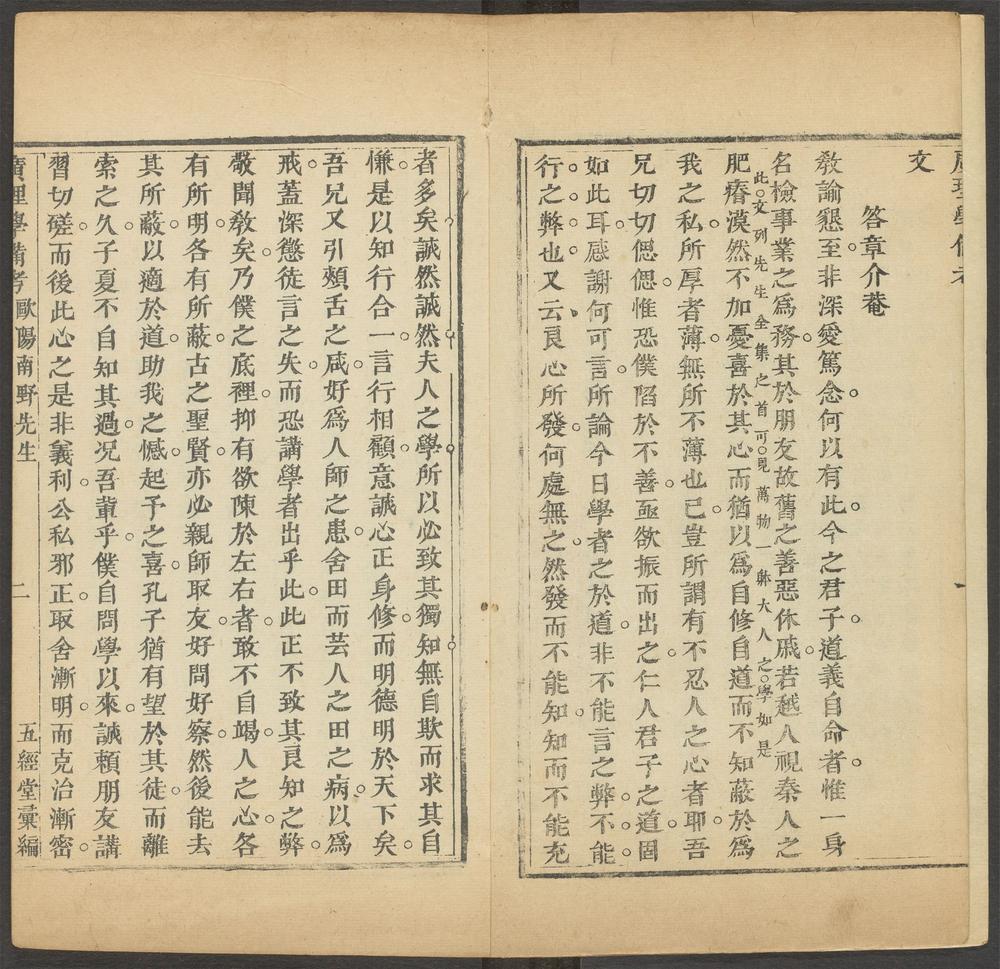 廣理學備考
文
答章介菴
教諭懇至非深愛篤念何以有此今之君子道義自命者惟一身
名檢事業之爲務其於朋友故舊之善惡休戚若越人視秦人之
此文列先生全集之首可見萬物一躰大人之學如是
肥瘠漠然不加憂喜於其心而猶以爲自修自道而不知蔽於爲
我之私所厚者薄無所不薄也已豈所謂有不忍人之心者耶吾
兄切切偲偲惟恐僕陷於不善亟欲振而出之仁人君子之道固
如此耳感謝何可言所論今日學者之於道非不能言之弊不能
行之弊也又云良心所發何處無之然發而不能知知而不能充
者多矣誠然誠然夫人之學所以必致其獨知無自欺而求其自
慊是以知行合一言行相顧意誠心正身修而明德明於天下矣
吾兄又引頰舌之咸好爲人師之患舍田而芸人之田之病以爲
戒蓋深懲徒言之失而恐講學者出乎此此正不致其良知之弊
敬聞教矣乃僕之底裡抑有欲陳於左右者敢不自竭人之心各
有所明各有所蔽古之聖賢亦必親師取友好問好察然後能去
其所蔽以適於道助我之憾起予之喜孔子猶有望於其徒而離
索之久子夏不自知其過况吾輩乎僕自問學以來誠賴朋友講
習切磋而後此心之是非義利公私邪正取舍漸明而克治漸密
廣理學備考 歐陽南野先生 二 五經堂彙編